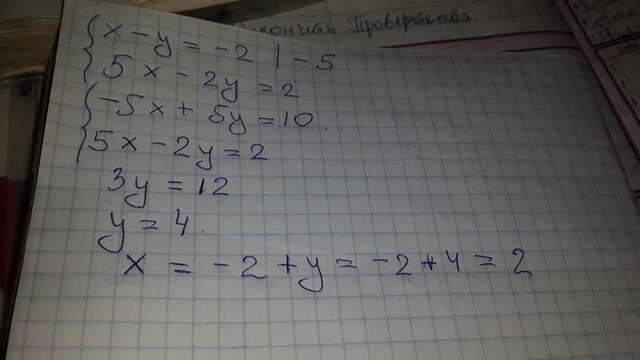 кончить Проверь себя
{ x - y = -2 | -5
5x - 2y = 2
{ -5x + 5y = 10.
5x - 2y = 2
3y = 12
y = 4.
x = -2 + y = -2 + 4 = 2